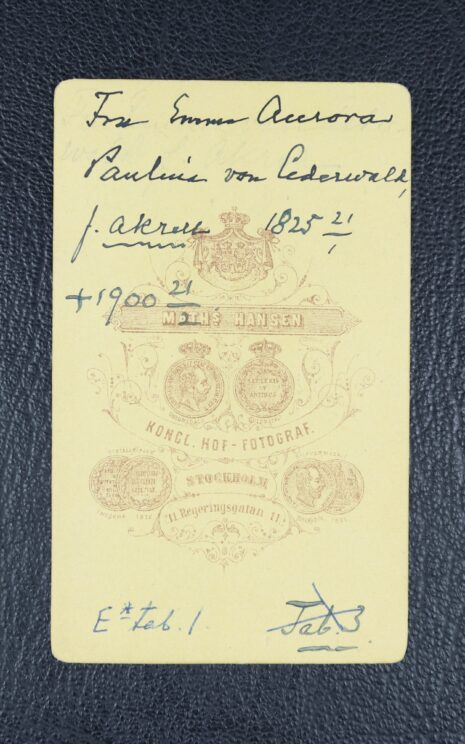 Fru Emma Aurora
Paulina von Cederwald,
f. Akrell 1825 21/1
+1900 21/2
MATHS HANSEN
KONGL. HOF-FOTOGRAF.
STOCKHOLM
11. Regeringsgatan 11.
E* Tab. 1.
Tab. 3.